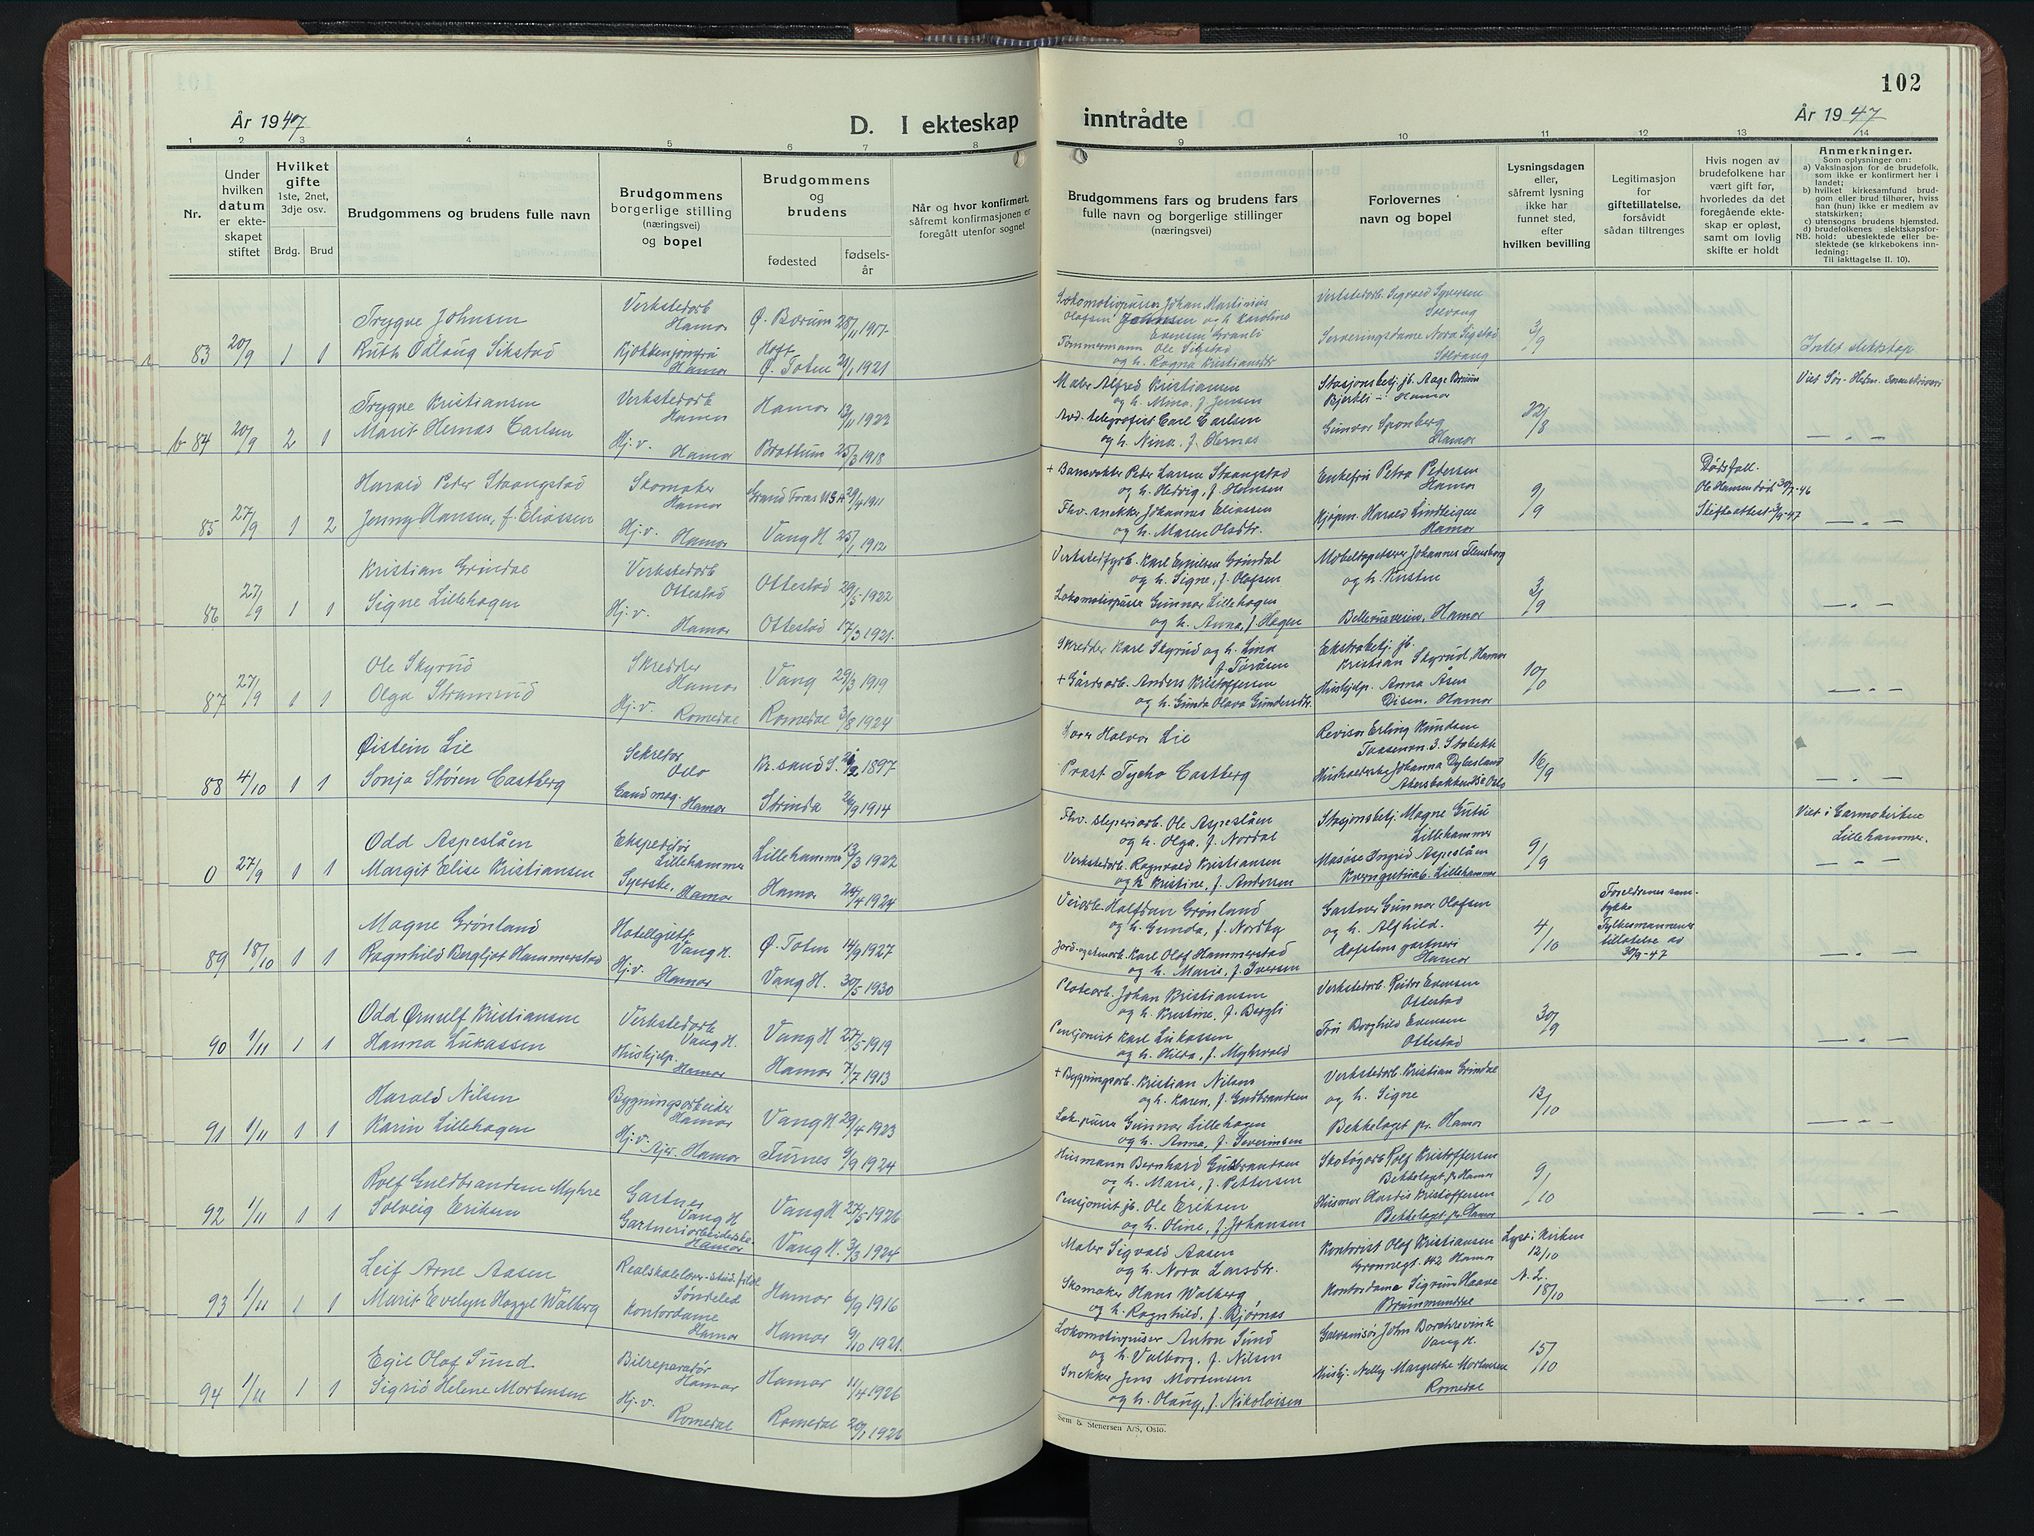 102
År 1947
D. I ekteskap inntrådte
År 1947
1 2 3 4 5 6 7 8 9 10 11 12 13 14
Nr.
Under hvilken datum er ekteskapet stiftet
Hvilket gifte
1ste, 2net, 3dje osv.
Brdg. Brud
Brudgommens og brudens fulle navn
Brudgommens borgerlige stilling (næringsvei) og bopel
Brudgommens og brudens
fødested
fødselsår
Når og hvor konfirmert, såfremt konfirmasjonen er foregått utenfor sognet
Brudgommens fars og brudens fars fulle navn og borgerlige stillinger (næringsvei)
Forlovernes navn og bopel
Lysningsdagen eller, såfremt lysning ikke har funnet sted, efter hvilken bevilling
Legitimasjon for giftetillatelse, forsåvidt sådan tiltrenges
Hvis nogen av brudefolkene har vært gift før, hvorledes da det foregående ekteskap er opløst, samt om lovlig skifte er holdt
Anmerkninger.
Som oplysninger om:
a) Vaksinasjon for de brudefolk, som ikke er konfirmert her i landet;
b) hvilket kirkesamfund brudgom eller brud tilhører, hviss han (hun) ikke er medlem av statskirken;
c) utensogns brudens hjemsted.
d) brudefolkenes slektskapsforhold: ubeslektede eller beslektede (se kirkebokens innledning:
NB. Til iakttagelse II. 10).
83 20/9 1 1
Trygve Johnsen
Ruth Odlaug Sikstad
Verkstedarb Hamar
Kjøkkenjomfru Hamar
Ø. Bærum 28/11 1917
Hoff Ø. Toten 21/1 1921
Lokomotivpusser Johan Martinius
Olafsen Johnsen og h. Karoline
Evensen Granli
Tømmermann Ole Sikstad
og h. Ragna Kristiansdtr
Verkstedarb. Sigvald Syversen
Solvang
Serveringsdame Nora Sigstad
Solvang
3/9
Intet slektskap
84 20/9 2 1
Trygve Kristiansen
Marit Hernæs Carlsen
Verkstedarb Hamar
Hj.v. Hamar
Hamar 13/11 1922
Brøttum 25/3 1918
Maler Alfred Kristiansen
og h. Mina, f. Jensen
Avd. telegrafist Carl Carlsen
og h. Nina, f. Hernæs
Stasjonsbetj. jb. Aage Bruun
Bjertli - Hamar
Gunvor Sponberg
Hamar
22/8
— " —
85 27/9 1 2
Harald Peder Staangstad
Jenny Hansen, f. Eliassen
Skomaker Hamar
Hj.v. Hamar
Grand Foras USA 29/4 1911
Vang H 25/1 1912
+ Banevokter Peter Larsen Staangstad
og h. Hedvig, f. Hansen
Fhv. snekker Johannes Eliassen
og h. Maren Olsdtr.
Enkefru Petra Pedersen
Hamar
Kjøpm. Harald Lindseigen
Hamar
9/9
Dødsfall.
Ole Hansen død 30/7-46
Skifteattest 3/9-47
— " —
86 27/9 1 1
Kristian Grindal
Signe Lillehagen
Verkstedarb Ottestad
Hj.v. Hamar
Ottestad 29/5 1922
Ottestad 17/3 1921.
Verkstedfyrb. Karl Emilsen Grindal
og h. Signe, f. Olafsen
Lokomotivpusser Gunnar Lillehagen
og h. Anna, f. Hagen
Møbeltapetserer Johannes Flensborg
og h. Kirsten
Bellevueveien, Hamar
3/9
— " —
87 27/9 1 1
Ole Skyrud
Olga Stramrud
Skredder Hamar
Hj.v. Romedal
Vang 29/3 1919
Romedal 3/8 1924
Skredder Karl Skyrud og h. Lina
f. Toråsen
+ Gårdsarb. Anders Kristoffersen
og h. Gunda Olava Gundersdtr.
Ekstrabetj. jb.
Kristian Skyrud, Hamar
Hushjelp. Anna Åsen
Disen, Hamar
10/0
— " —
88 4/10 1 1
Øistein Lie
Sonja Støren Castberg
Sekretær Oslo
Cand mag. Hamar
Kr.sand S. 1897
Strinda 26/9 1914
Halvor Lie
Prost Tycho Castberg
Revisor Erling Knudsen
3. Stabekk
Husholderske Johanna Dybesland
Akersbakken Oslo
16/9
— " —
0 27/9 1 1
Odd Aspeslåen
Margit Elise Kristiansen
Ekspeditør Lillehammer
Syerske, Hamar
Lillehammer 13/3 1922
Hamar 24/4 1924
Fhv. sleperiarb. Ole Aspeslåen
og h. Olga, f. Nordal
Verkstedarb. Ragnvald Kristiansen
og h Kristine, f. Andersen
Stasjonsbetj. Magne Gutu
Lillehammer
Masøse Ingrid Aspeslåen
Lillehammer
9/9
Viet i Garmokirken
Lillehammer.
— " —
89 18/10 1 1
Magne Grønland
Ragnhild Bergljot Hammerstad
Hotellgutt Vang H.
Hj.v. Hamar
Ø. Toten 14/9 1927
Vang H. 30/5 1930
Veiarb. Halfdan Grønland
og h. Gunda, f. Nordby
Jord- og skogarb. Karl Olof Hammerstad
og h. Marie, f. Iversen
Gartner Gunnar Olafsen
og h. Alfhild.
gartneri
Hamar
4/10
Foreldrenes samtykke
Fylkesmannens tillatelse av
30/9-47
— " —
90 1/11 1 1
Odd Ørnulf Kristiansen
Hanna Lukassen
Verkstedarb Vang H.
Hushjelp. Hamar
Vang H 27/5 1919
Hamar 7/7 1913
Platearb. Johan Kristiansen
og h. Kristine, f. Bergli
Pensjonist Karl Lukassen
og h. Hilda, f. Myhrvold
Verkstedarb. Peder Evensen
Ottestad
Fru Borghild Evensen
Ottestad
30/9
— " —
91 1/11 1 1
Harald Nilsen
Karin Lillehagen
Bygningsarbeider Hamar
Hj.v. Ajer. Hamar
Vang H 29/4 1923
Furnes 9/9 1924
+ Bygningsarb. Kristian Nilsen
og h. Karen, f. Gudbrandsen
Lok.pusser Gunnar Lillehagen
og h. Anna, f. Severinsen
Verkstedarb Kristian Grindal
og h. Signe
Bekkelaget pr. Hamar
13/10
— " —
92 1/11 1 1
Rolf Guldbrandsen Myhre
Solveig Eriksen
Gartner Vang H
Gartneriarbeiderske Hamar
Vang H 27/5 1926
Vang H. 3/3 1924
Husmann Bernhard Guldbrandsen
og h. Marie, f. Pettersen
Pensjonist jb. Ole Eriksen
og h. Oline, f. Johansen
Skotøyarb Rolf Kristoffersen
Bekkelaget, pr. Hamar
Husmor Hardis Kristoffersen
Bekkelaget pr. Hamar
9/10
— " —
93 1/11 1 1
Leif Arne Aasen
Marit Evelyn Heggel Walberg
Realskolelærer - stud. filol
Søndeled
Kontordame
Hamar
Hamar 6/9 1916
Hamar 9/10 1921.
Maler Sigvald Aasen
og h. Nora Larsdtr.
Skomaker Hans Walberg
og h. Ragnhild, f. Bjørnås
Kontorist Olaf Kristiansen
Grønnegt. 142 Hamar
Kontordame Sigrun Haave
Brummunddal
Lyst i kirken
12/10
N.L.
18/10
— " —
94 1/11 1 1
Egil Olaf Sund
Sigrid Helene Mortensen
Bilreparatør Hamar
Hj.v.
Romedal
Hamar 11/4 1926
Romedal 20/1 1926
Lokomotivpusser Anton Sund
og h. Valborg, f. Nilsen
Snekker Jens Mortensen
og h. Olaug, f. Nikolaisen
Galvanisør John Borchrevink
Vang H.
Husbj. Nelly Margrethe Mortensen
Romedal
15/10
Sem & Stenersen A/S, Oslo.